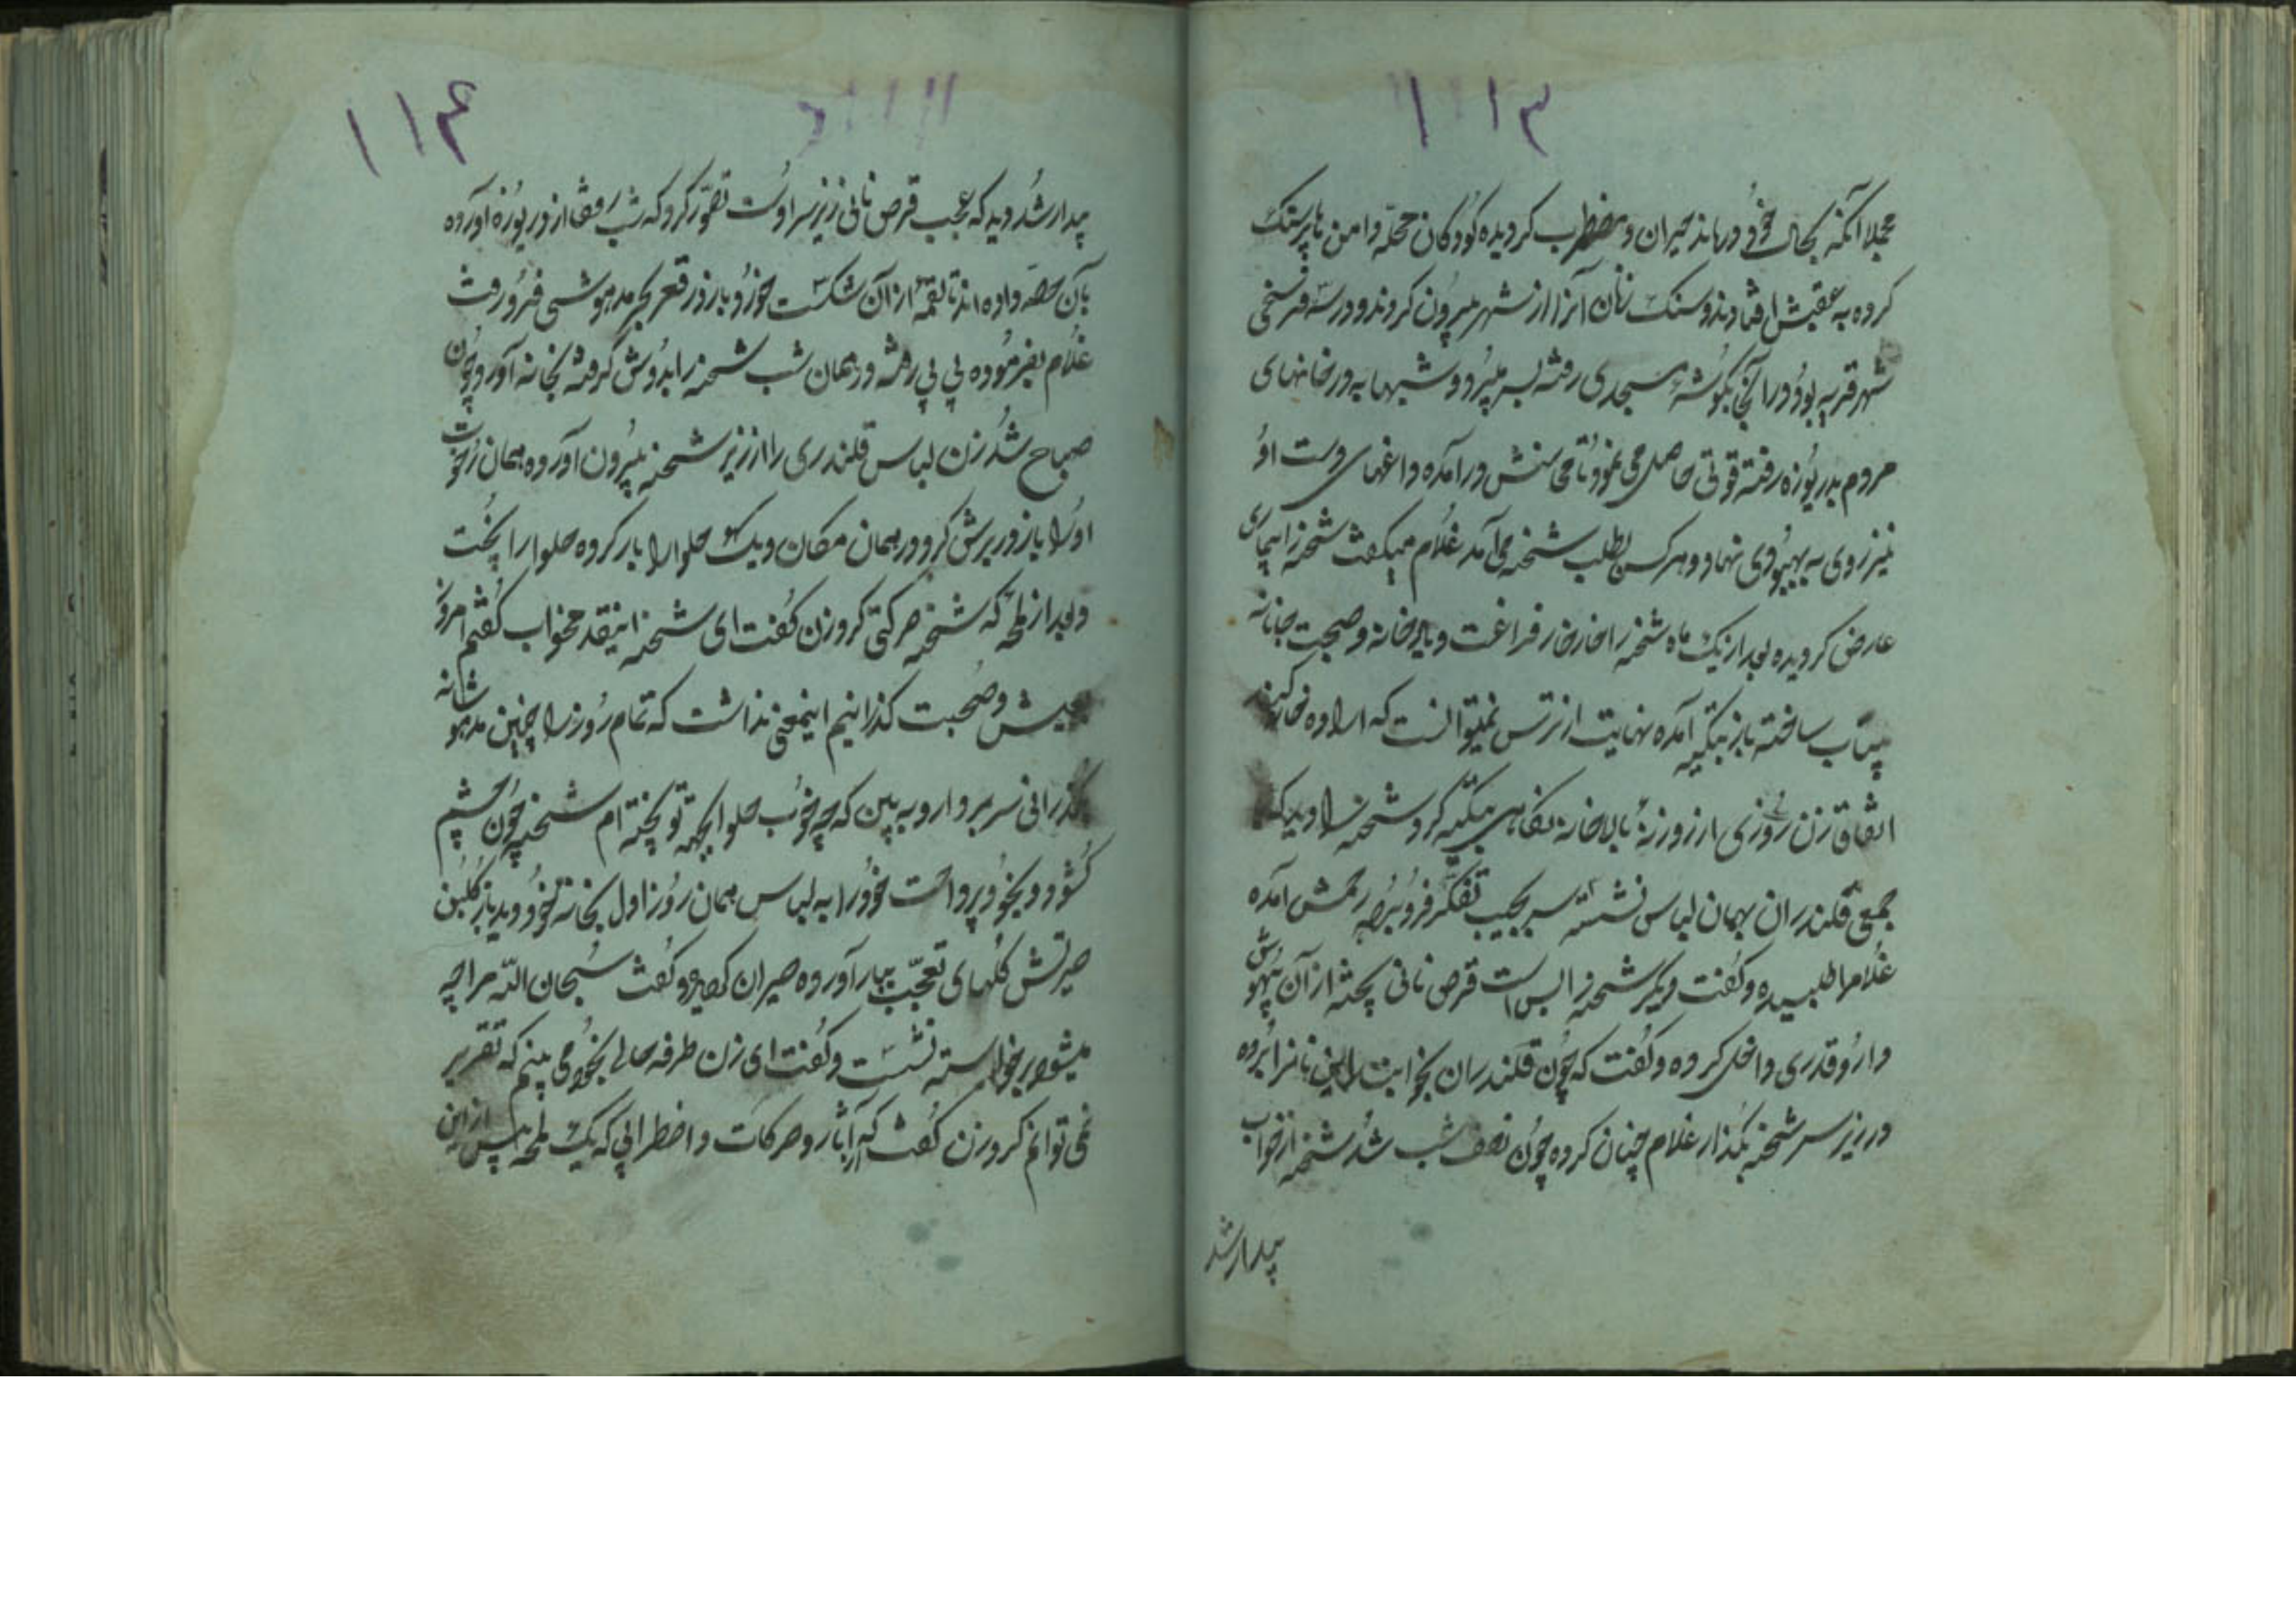 ۱۱۳
مجملا آنکه بحال خود درماند حیران و مضطرب کردیده کودکان محله دامن ها پرسنک
کرده به عقبش افتادند و سنک زنان آنرا از شهر بیرون کردند و در سه فرسخی
شهر قریه بود در آنجا بکوشهٔ مسجدی رفته بسر میبرد و شبها به در خانهای
مردم بدریوزه رفته قوتی حاصل می نمود تا محاسنش در آمده داغهای دست او
نیز روی به بهبودی نهاد و هر کس بطلب شحنه می آمد غلام میکفت شحنه را بیماری
عارض کردیده بعد از یک ماه شحنه را خارخار فراغت و بالاخانه و صحبت جانانه
بیتاب ساخته باز بتکیه آمده نهایت از ترس نمیتوانست که ارادهٔ خانه کند
اتفاقا زن روزی از روزنهٔ بالاخانه نکاهی بتکیه کرد شحنه را دید که
جمعی قلندران بهمان لباس نشسته سر بجیب تفکر فرو برده رحمش آمده
غلام را طلبیده و کفت دیکر شحنه را بس است قرص نانی پخته از آن بیهوش
دارو قدری داخل کرده و کفت که چون قلندران بخوابند این نانرا برده
در زیر سر شحنه بگذار غلام چنان کرده چون نصف شب شد شحنه از خواب
بیدار شد
۱۱۴
بیدار شد دید که عجب قرص نانی زیر سر اوست تصور کرد که شب رفقا از دریوزه آورده
بآن حصه داده اند تا لقمهٔ از آن شکست خورد باز در قعر بحر مدهوشی فرو رفت
غلام بفرمودهٔ بی بی رفته در همان شب شحنه را بدوش گرفته بخانه آورد چون
صباح شد زن لباس قلندری را از زیر شحنه بیرون آورده همان رخوت
او را باز در برش کرد و در همان مکان دیک حلوا را بار کرده حلوا را پخت
و بعد از لمحهٔ که شحنه حرکتی کرد زن کفت ای شحنه اینقدر مخواب کفتم امروز
بعیش و صحبت کذرانیم اینمعنی نداشت که تمام روز را چنین مدهوشانه
گذرانی سر بردار و به بین که چه خوب حلوا بجهه تو پخته ام شحنه چون چشم
کشود و بخود پرداخت خود را به لباس همان روز اول بخانهٔ خود دید باز کلبن
حیرتش کلهای تعجب ببار آورده حیران کردید و کفت سبحان الله مرا چه
میشود برخواسته نشست و کفت ای زن طرفه حالی بخود می بینم که تقریر
نمی توانم کرد زن کفت که آثار و حرکات و اضطرابی که یک لمحه پیش از این